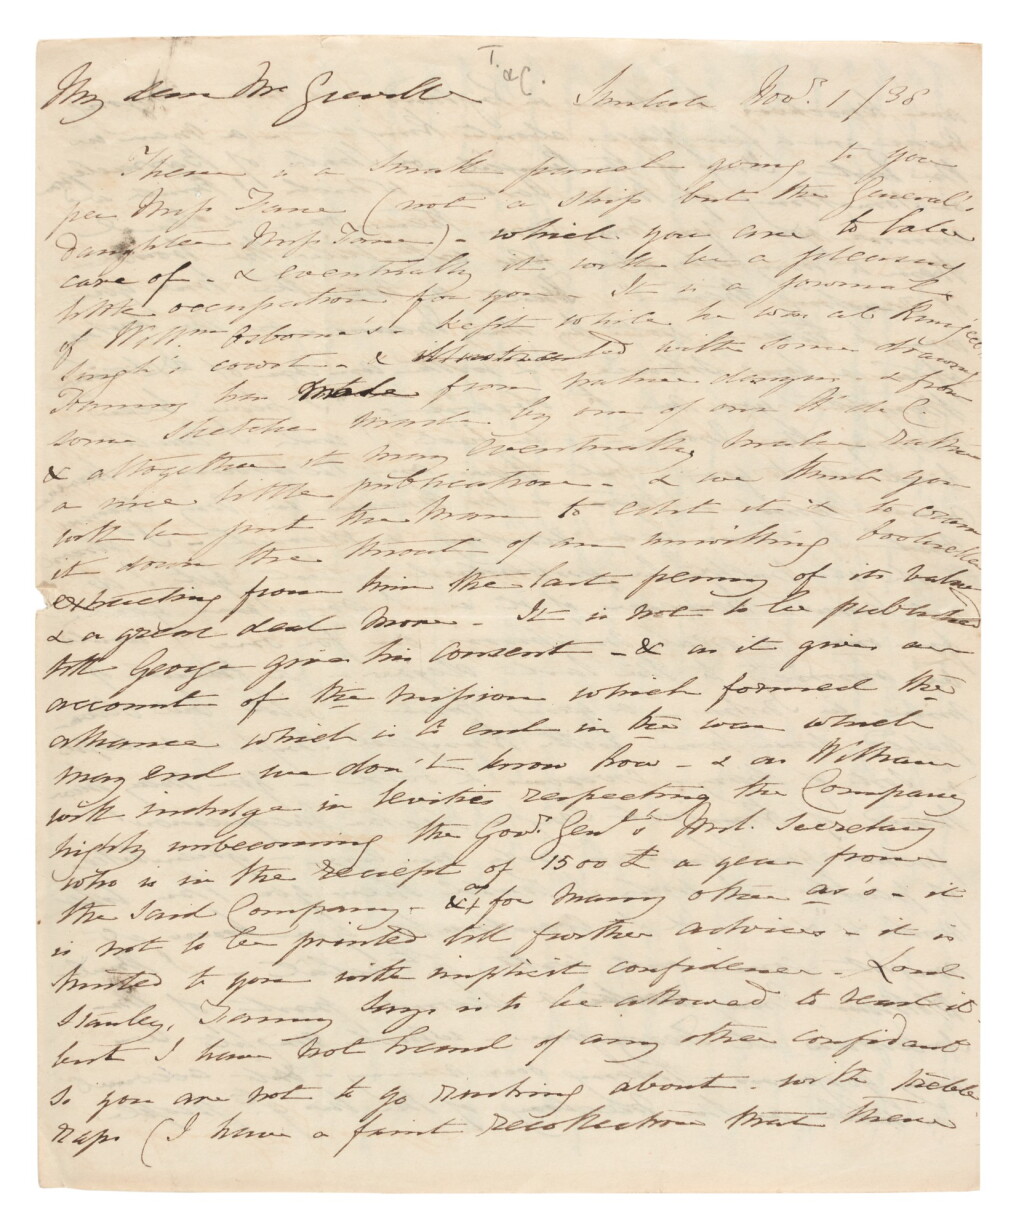 T. & C.
My dear Mr Greville Simla Novr. 1/38
There is a small parcel going to you
per Miss Fane (not a ship but the General's
daughter Miss Fane) - which you are to take
care of - & eventually it will be a pleasing
little occupation for you. It is a journal
of Willm Osborne's - kept while he was at Runjeet
Singh's court - & illustrated with some drawings
Fanny has made from nature & from
some sketches made by one of our A de C.
& altogether it may eventually make rather
a nice little publication - & we think you
will be just the man to edit it & to cram
it down the throat of an unwilling bookseller
extracting from him the last penny of its value
& a great deal more - It is not to be published
till George gives his consent - & as it gives an
account of the mission which formed the
alliance which is to end in the war which
may end we don't know how - & as William
will indulge in levities respecting the Company
highly unbecoming the Govr. Genl's Mil. Secretary
who is in the reciept of 1500 £ a year from
the said Company - & for many other as's - it
is not to be printed till further advices - it is
trusted to you with implicit confidence - Lord
Stanley, Fanny says is to be allowed to read it
but I have not heard of any other confidant
so you are not to go rushing about with treble
raps (I have a faint recollection that there